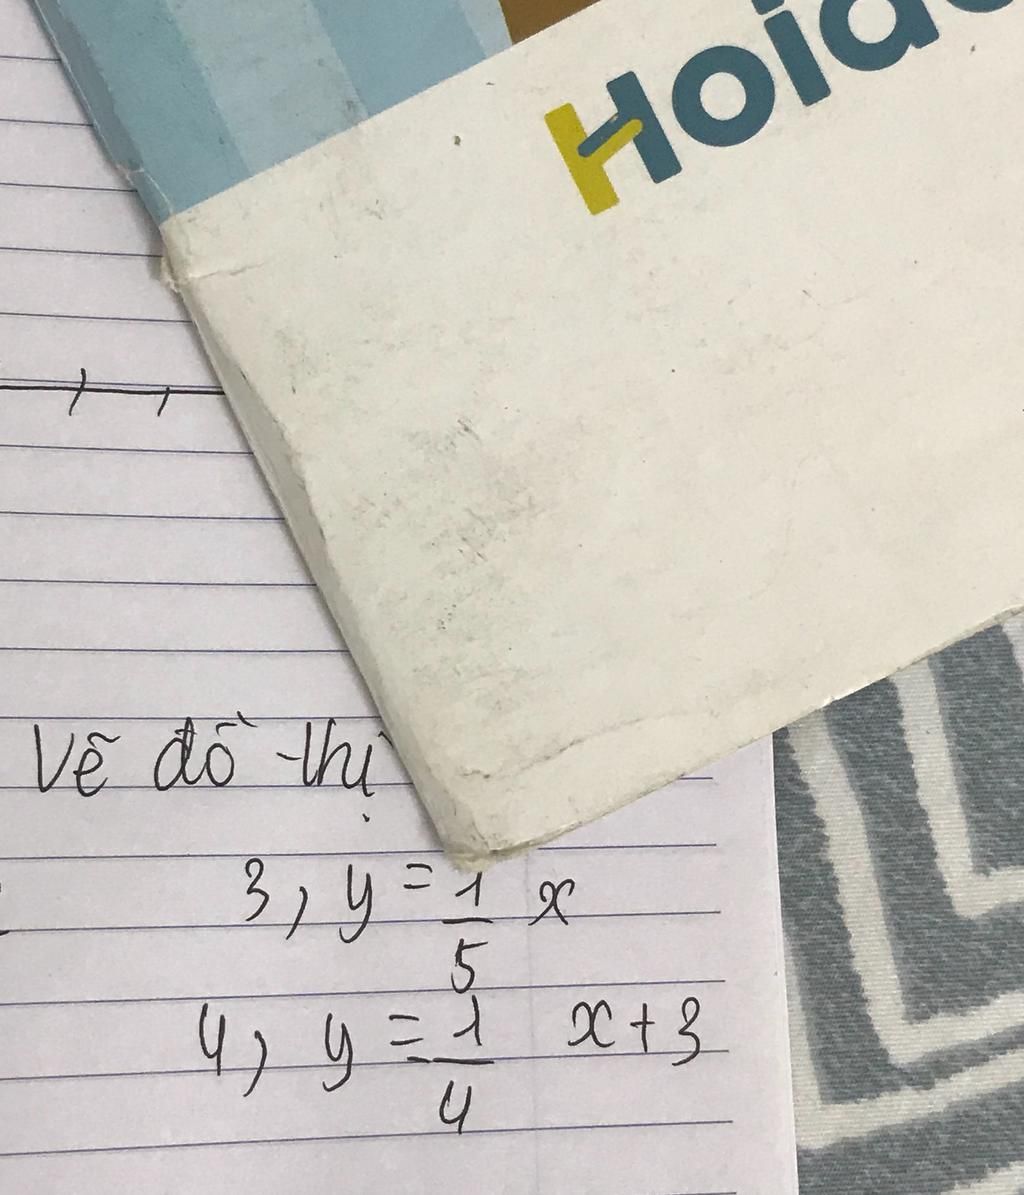 Hoid
Vẽ đồ thị
3, y = 1/5 x
4, y = 1/4 x + 3